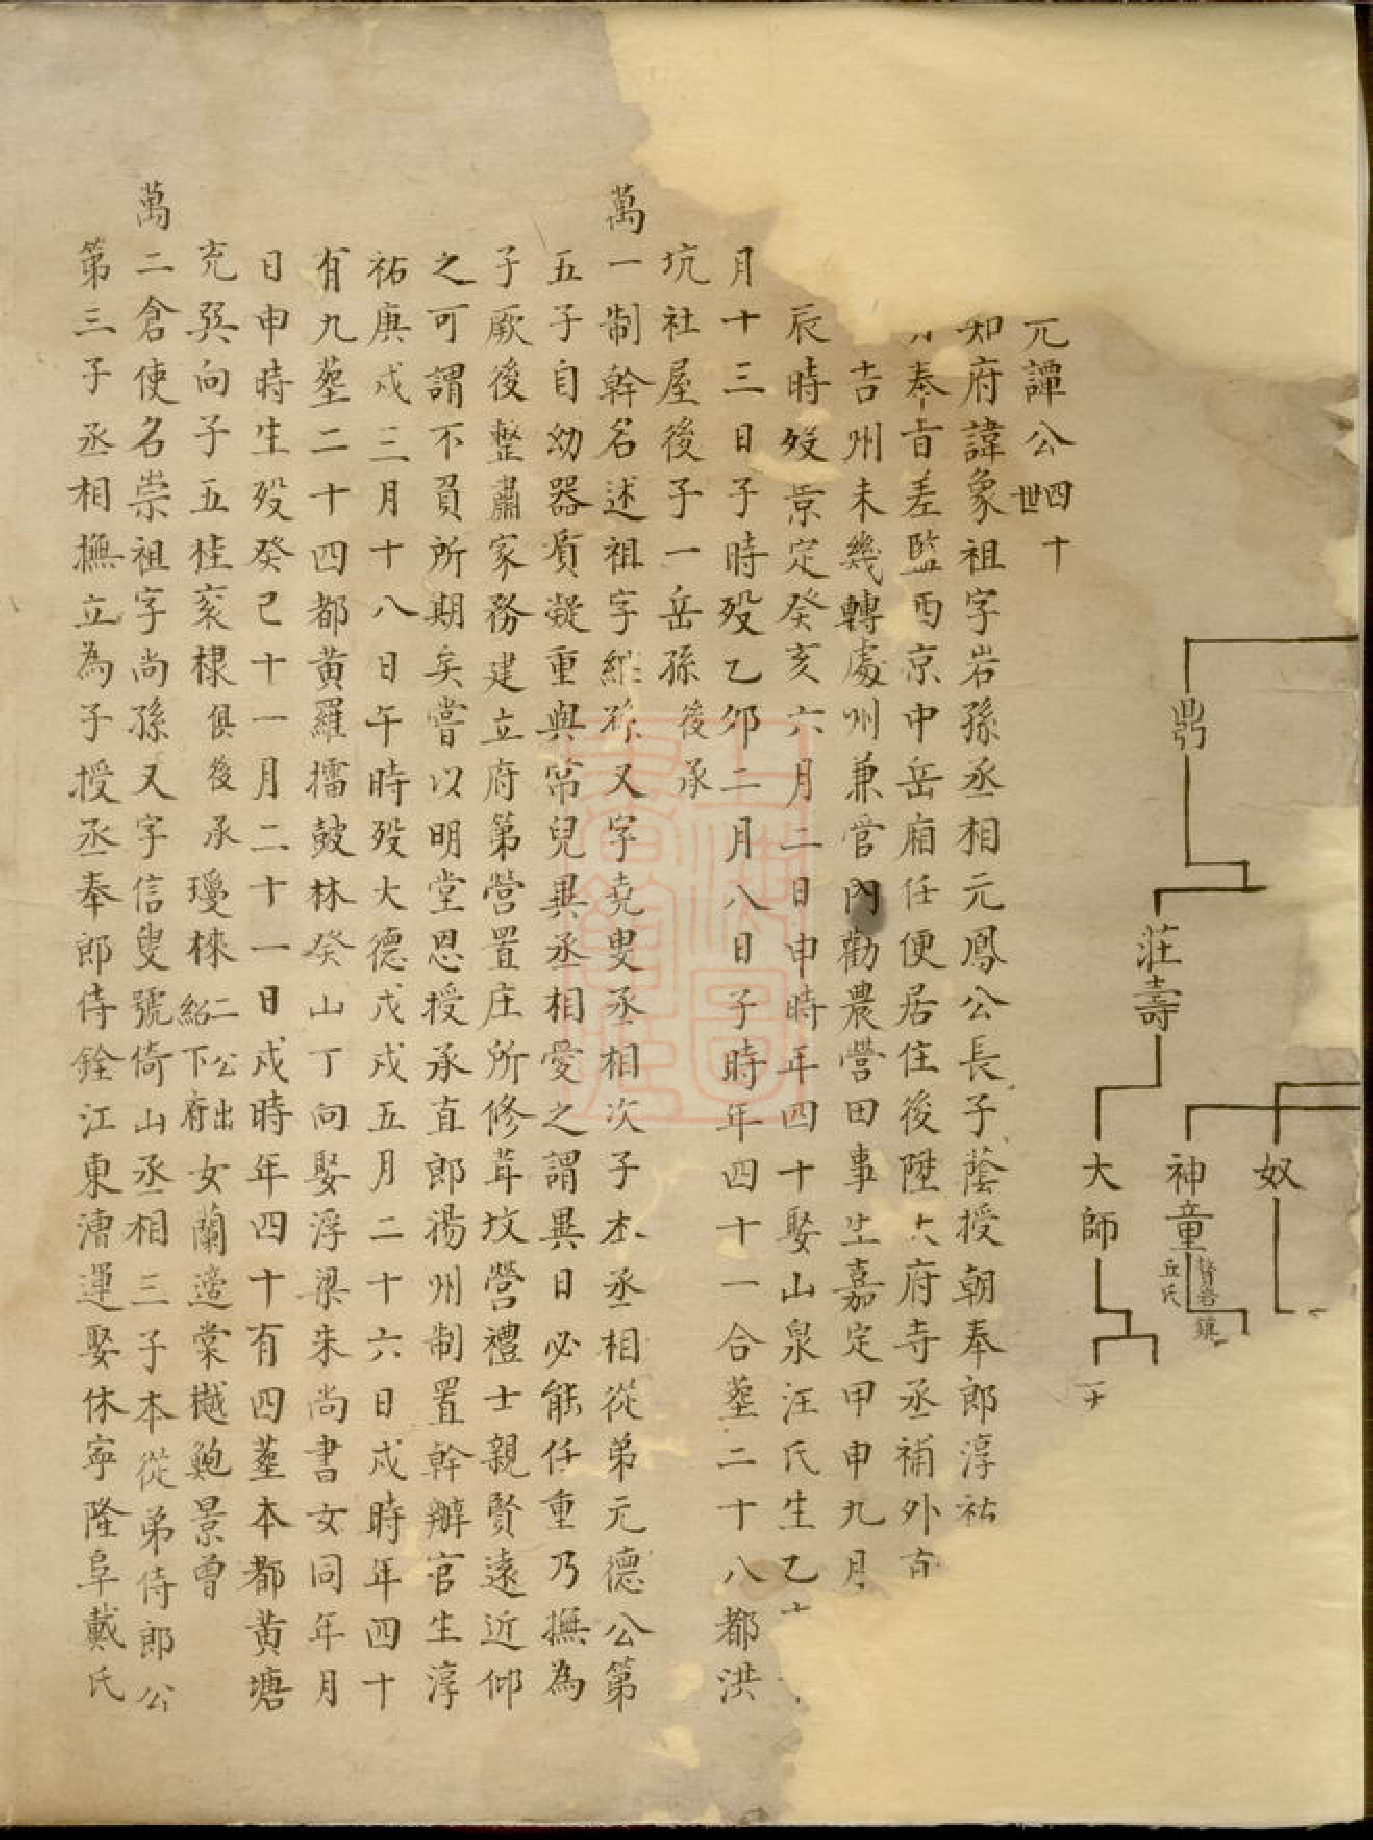 奴
神童
督岩鎮
丘氏
鼎
莊壽
大師
元譚公四十世
知府諱象祖字岩孫丞相元鳳公長子蔭授朝奉郎淳祐
奉旨差監西京中岳廟任便居住後陞大府寺丞補外
吉州未幾轉處州兼管內勸農營田事生嘉定甲申九月
辰時歿景定癸亥六月二日申時年四十娶山泉汪氏生乙
月十三日子時歿乙卯二月八日子時年四十一合塟二十八都洪
坑社屋後子一岳孫後承
萬一制幹名述祖字繼孫又字堯叟丞相次子本丞相從弟元德公第
五子自幼器質凝重與常兒異丞相愛之謂異日必能任重乃撫為
子厥後整肅家務建立府第營置庄所修葺坟營禮士親賢遠近仰
之可謂不負所期矣嘗以明堂恩授承直郎揚州制置幹辦官生淳
祐庚戌三月十八日午時歿大德戊戌五月二十六日戌時年四十
有九塟二十四都黃羅擂鼓林癸山丁向娶浮梁朱尚書女同年月
日申時生歿癸己十一月二十一日戌時年四十有四塟本都黃塘
充巽向子五桂衮棣俱後承瓊棶二公出紹下府女蘭適棠樾鮑景曾
萬二倉使名崇祖字尚孫又字信叟號倚山丞相三子本從弟侍郎公
第三子丞相撫立為子授丞奉郎侍銓江東漕運娶休寧隆阜戴氏